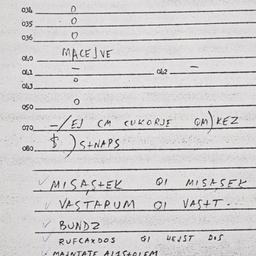 034 0
035 0
036 0
040 MACEJVE
041 - 042 -
043 0
050 0
070 -/EJ CM CUKORJE QM)KEZ
080 $ )S+NAPS
✓ MISAS+EK QI MISASEK
✓ VASTAPUM QI VAS+T.
✓ BUNDZ
✓ RUFCAXDOS QI HEJST DOS